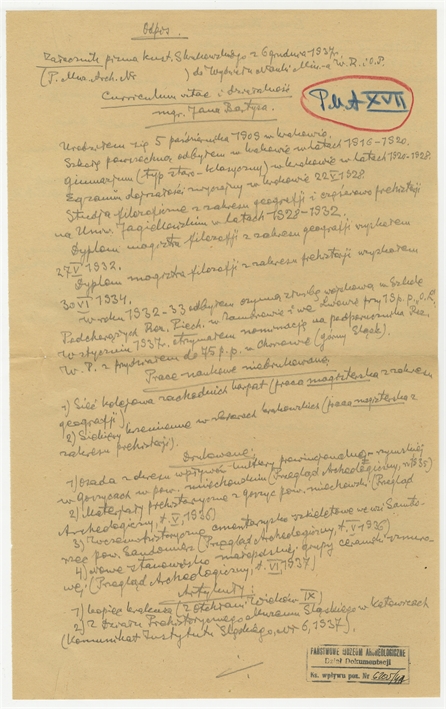 Odpis
Załącznik pisma kust. Skutkowskiego z 6 grudnia 1937 r.
(P. Muz. Arch. Nr ) do Wydziału Nauki Min-a W. R. i O. P.
Curriculum vitae i działalność
mgr. Jana Bartysa.
P.M.A XVII
Urodziłem się 5 października 1909 w Krakowie.
Szkołę powszechną odbyłem w Krakowie w latach 1916-1920.
Gimnazjum (typ staro-klasyczny) w Krakowie w latach 1920-1928.
Egzamin dojrzałości zwyczajny w Krakowie 22 V 1928.
Studja filozoficzne z zakresu geografii i częściowo prehistorji
na Uniw. Jagiellońskim w latach 1928-1932.
Dyplom magistra filozofji z zakresu geografii uzyskałem
27 V 1932.
Dyplom magistra filozofji z zakresu prehistorji uzyskałem
30 VI 1934.
W roku 1932-33 odbyłem czynną służbę wojskową w Szkole
Podchorążych Rez. Piech. w Zambrowie i we Lwowie przy 19 p.p. „O.L."
W styczniu 1937 otrzymałem nominację na podporucznika Rez.
W. P. z przydziałem do 75 p.p. w Chorzowie (Górny Śląsk).
Prace naukowe niedrukowane:
1) Sieć kolejowa zachodnich Karpat (praca magisterska z zakresu
geografji)
2) Siekiery krzemienne w zbiorach krakowskich (praca magisterska z
zakresu prehistorji).
Drukowane:
1) Osada z okresu wpływów kultury prowincjonalno-rzymskiej
w Gorzycach w pow. miechowskim (Przegląd Archeologiczny, 1935)
2) Materjały prehistoryczne z Gorzyc pow. miechowski (Przegląd
Archeologiczny, t. V 1936)
3) Wczesnohistoryczne cmentarzysko szkieletowe we wsi Samborzec
pow. Sandomierz (Przegląd Archeologiczny, t. V 1936)
4) Nowe stanowisko małopolskiej grupy ceramiki sznurowej
(Przegląd Archeologiczny, t. VI 1937)
Artykuły:
1) Kopiec Krakusa (Z Otchłani Wieków IX)
2) Z działu Prehistorycznego Muzeum Śląskiego w Katowicach
(Komunikat Instytutu Śląskiego, nr 6, 1937).
PAŃSTWOWE MUZEUM ARCHEOLOGICZNE
Dział Dokumentacji
Ks. wpływu poz. Nr